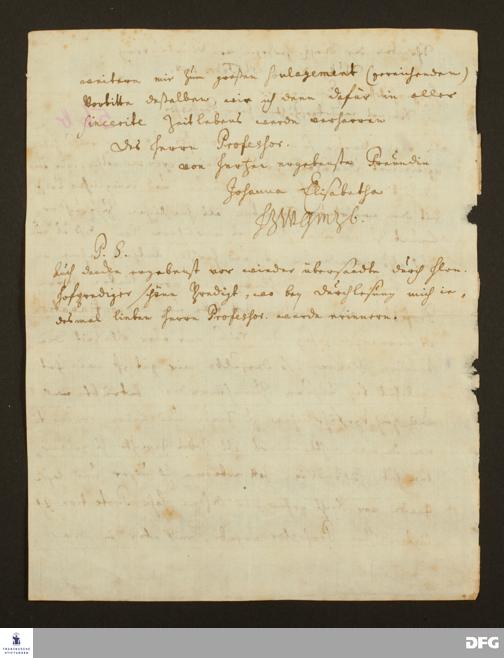 weitern mir zum großen soulagement (gereichenden)
Vorbitte deßelben, wie ich denn dafür in aller
sincerité Zeitlebens werde verharren
Des Herrn Professor.
von Hertzen ergebenste Freundin
Johanna Elisabetha
P. S.
Auch dancke ergebenst vor wieder übersandte durch Hrn.
Hofprediger schöne Predigt, wo bey Durchlesung mich je,
desmal lieben Herrn Professor. werde erinnern.
FRANCKESCHE
STIFTUNGEN
DFG